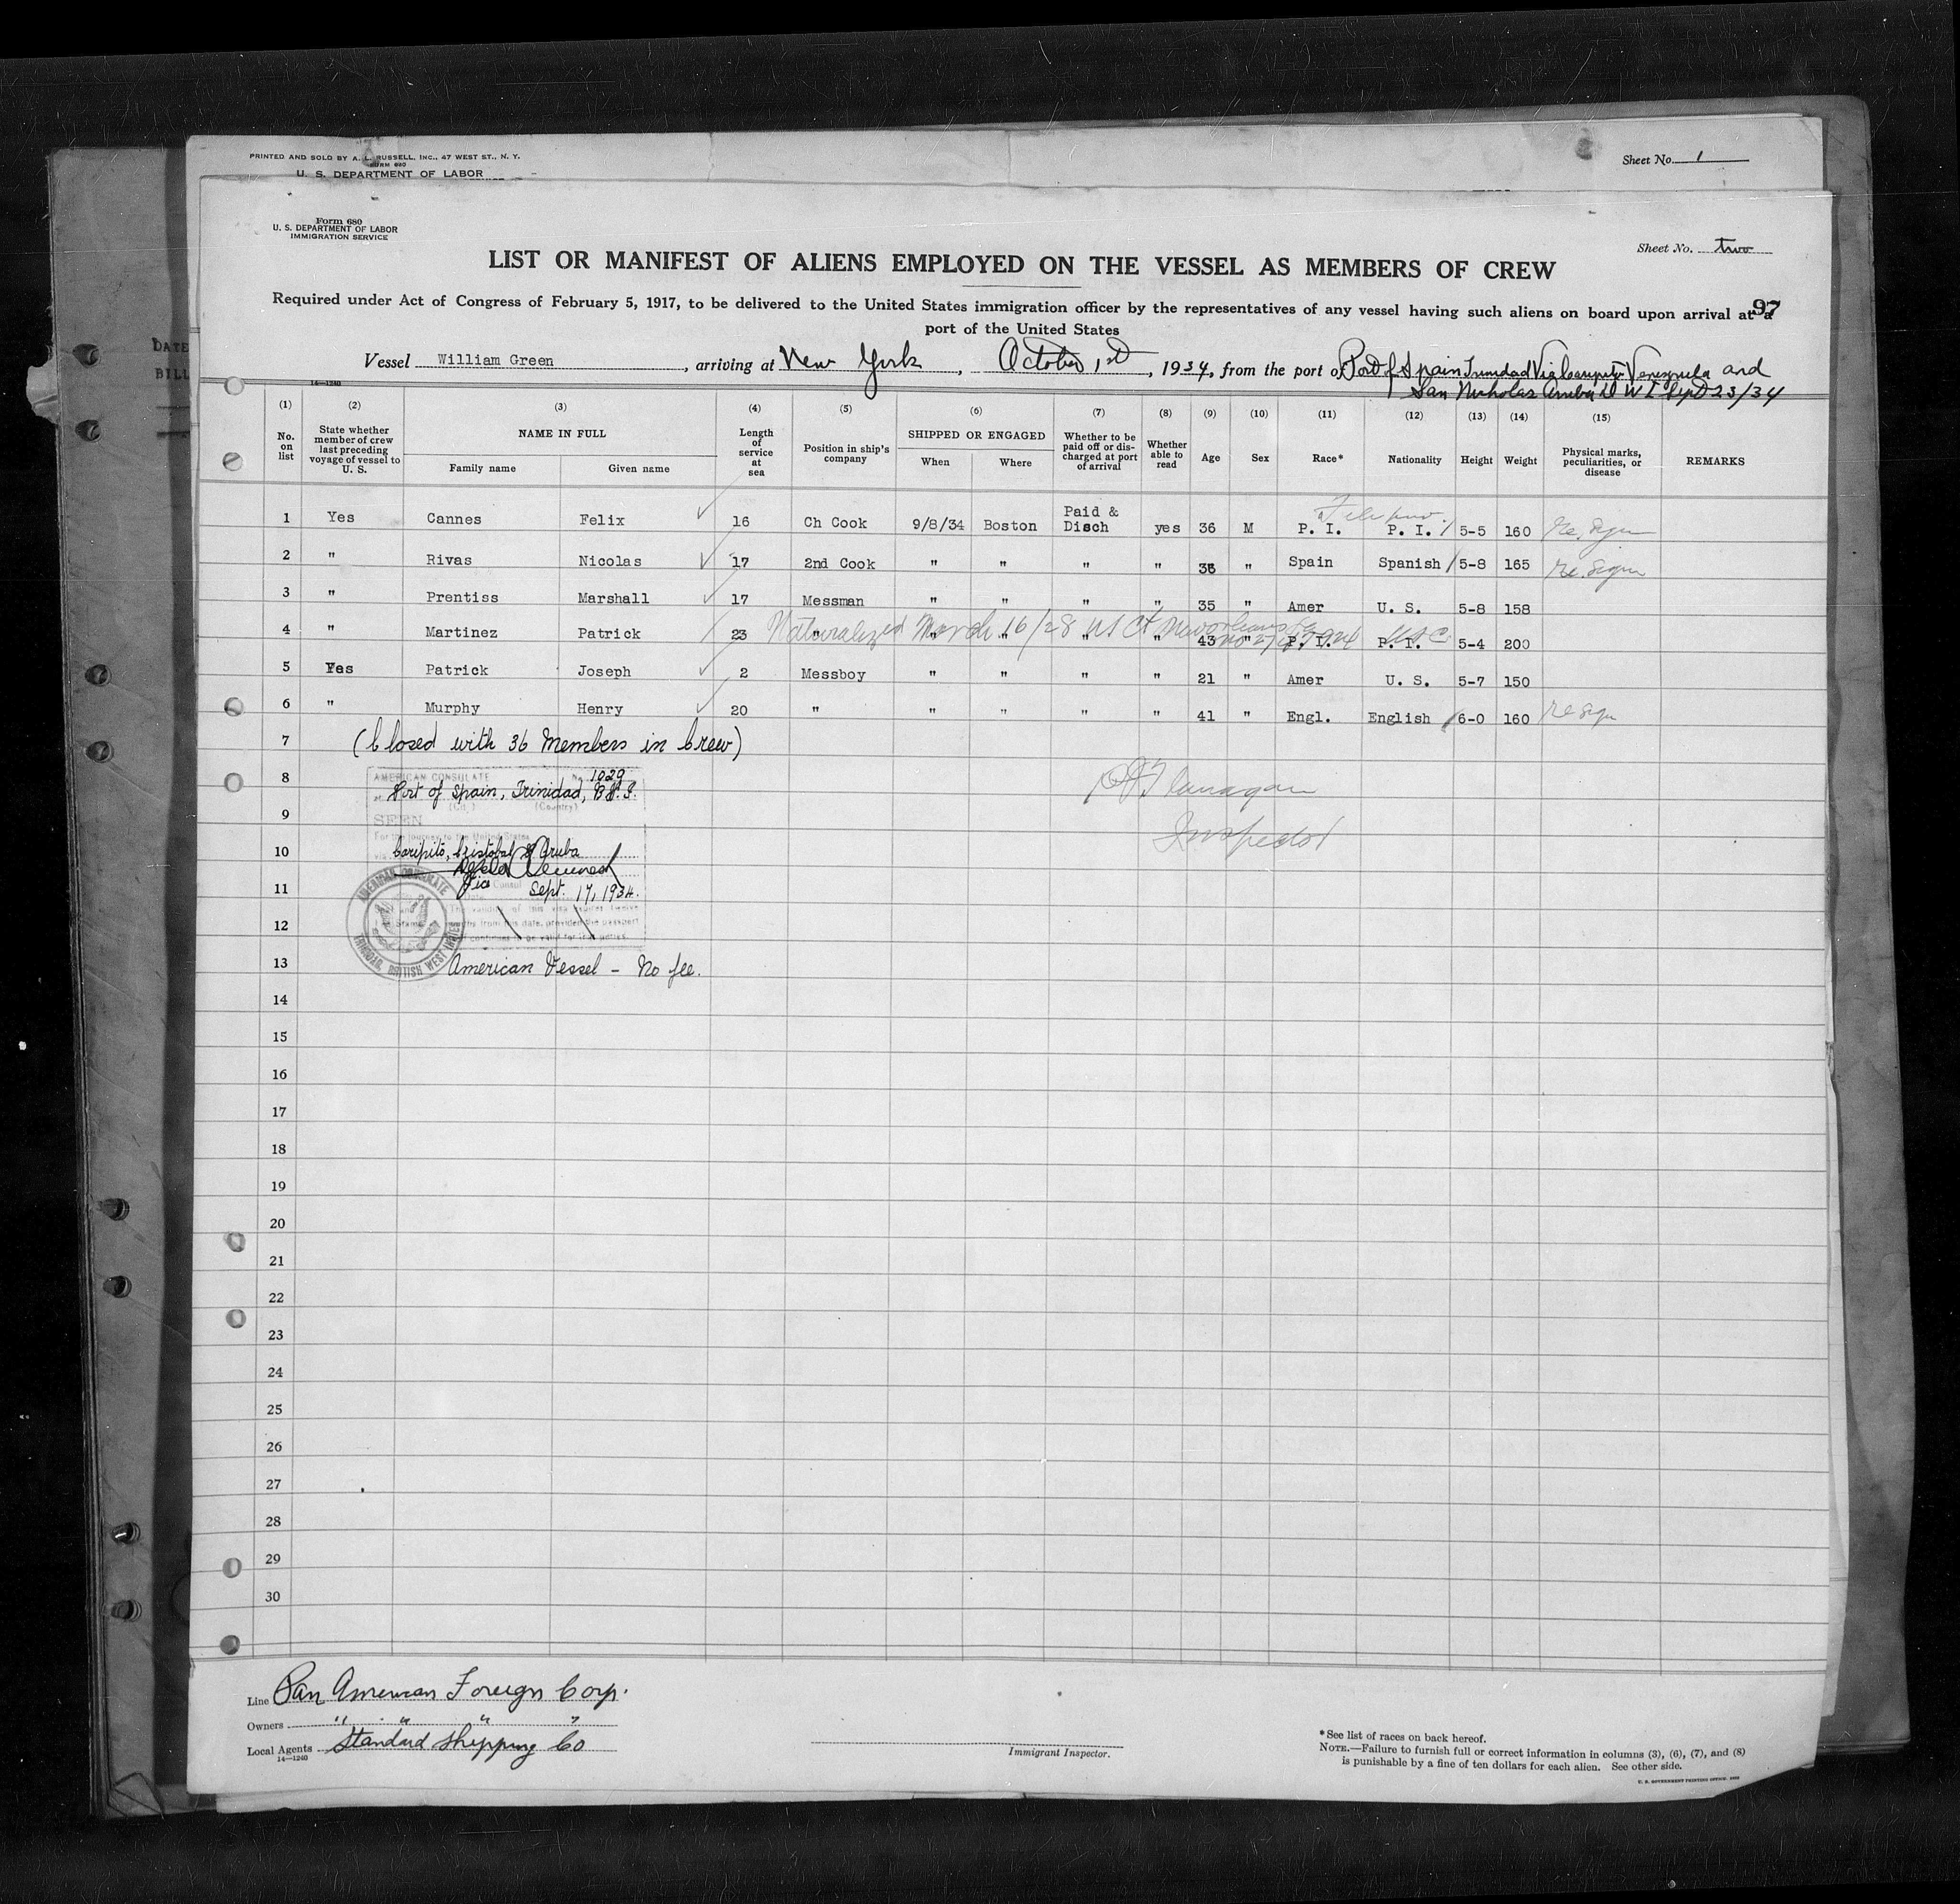 PRINTED AND SOLD BY A. L. RUSSELL, INC., 47 WEST ST., N. Y.
FORM 680
U. S. DEPARTMENT OF LABOR
Sheet No. 1
DATE
BILL
Form 680
U. S. DEPARTMENT OF LABOR
IMMIGRATION SERVICE
Sheet No. two
LIST OR MANIFEST OF ALIENS EMPLOYED ON THE VESSEL AS MEMBERS OF CREW
Required under Act of Congress of February 5, 1917, to be delivered to the United States immigration officer by the representatives of any vessel having such aliens on board upon arrival at a
97
port of the United States
Vessel William Green, arriving at New York, October 1st, 1934, from the port of Port of Spain Trinidad Via Caripito Venezuela and
San Nicholas Aruba D W I Sept 23/34
14—1240
(1) (2) (3) (4) (5) (6) (7) (8) (9) (10) (11) (12) (13) (14) (15)
No. on list
State whether member of crew last preceding voyage of vessel to U. S.
NAME IN FULL
Family name Given name
Length of service at sea
Position in ship's company
SHIPPED OR ENGAGED
When Where
Whether to be paid off or discharged at port of arrival
Whether able to read
Age
Sex
Race*
Nationality
Height
Weight
Physical marks, peculiarities, or disease
REMARKS
Filipino
1 Yes Cannes Felix 16 Ch Cook 9/8/34 Boston Paid & Disch yes 36 M P. I. P. I. 5-5 160 Re. Sign
2 " Rivas Nicolas 17 2nd Cook " " " " 36 " Spain Spanish 5-8 165 Re. Sign
3 " Prentiss Marshall 17 Messman " " " " 35 " Amer U. S. 5-8 158
Naturalized March 16/28 US Ct New Orleans La USC
4 " Martinez Patrick 23 " " " " " 43 " P. I. P. I. 5-4 200
5 Yes Patrick Joseph 2 Messboy " " " " 21 " Amer U. S. 5-7 150
6 " Murphy Henry 20 " " " " " 41 " Engl. English 6-0 160 Re Sign
7 (Closed with 36 Members in Crew)
8
AMERICAN CONSULATE No. 1029
at Port of Spain, Trinidad, B.W.I.
(City) (Country)
Flanagan
9
SEEN
Inspector
For the journey to the United States
10
via Caripito, Cristobal & Aruba
11
Vice Consul
Sept. 17, 1934.
12
The validity of this visa expires twelve
months from this date, provided the passport
continues to be valid for that period.
AMERICAN CONSULATE
TRINIDAD, BRITISH WEST INDIES
13 American Vessel - No fee.
14
15
16
17
18
19
20
21
22
23
24
25
26
27
28
29
30
Line Pan American Foreign Corp.
Owners " " " "
Local Agents Standard Shipping Co
14—1240
Immigrant Inspector.
*See list of races on back hereof.
NOTE.—Failure to furnish full or correct information in columns (3), (6), (7), and (8)
is punishable by a fine of ten dollars for each alien. See other side.
U. S. GOVERNMENT PRINTING OFFICE